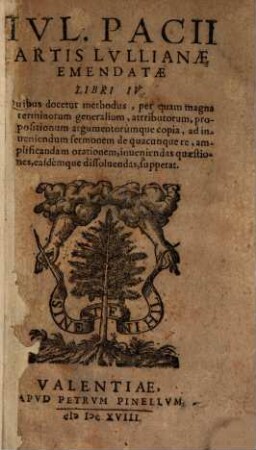 IVL. PACII
ARTIS LVLLIANÆ
EMENDATÆ
LIBRI IV.
Quibus docetur methodus, per quam magna
terminorum generalium, attributorum, pro-
positionum argumentorúmque copia, ad in-
ueniendum sermonem de quacunque re, am-
plificandam orationem, inueniendas quæstio-
nes, easdémque dissoluendas, supperat.
SINE TE NIHIL
VALENTIAE,
APVD PETRVM PINELLVM,
cIↃ IↃc XVIII.